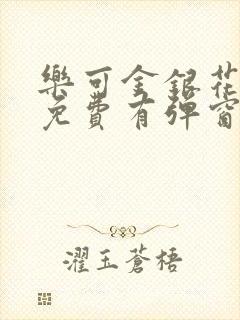 樂可金銀花
免費有彈窗
濯玉蒼梧